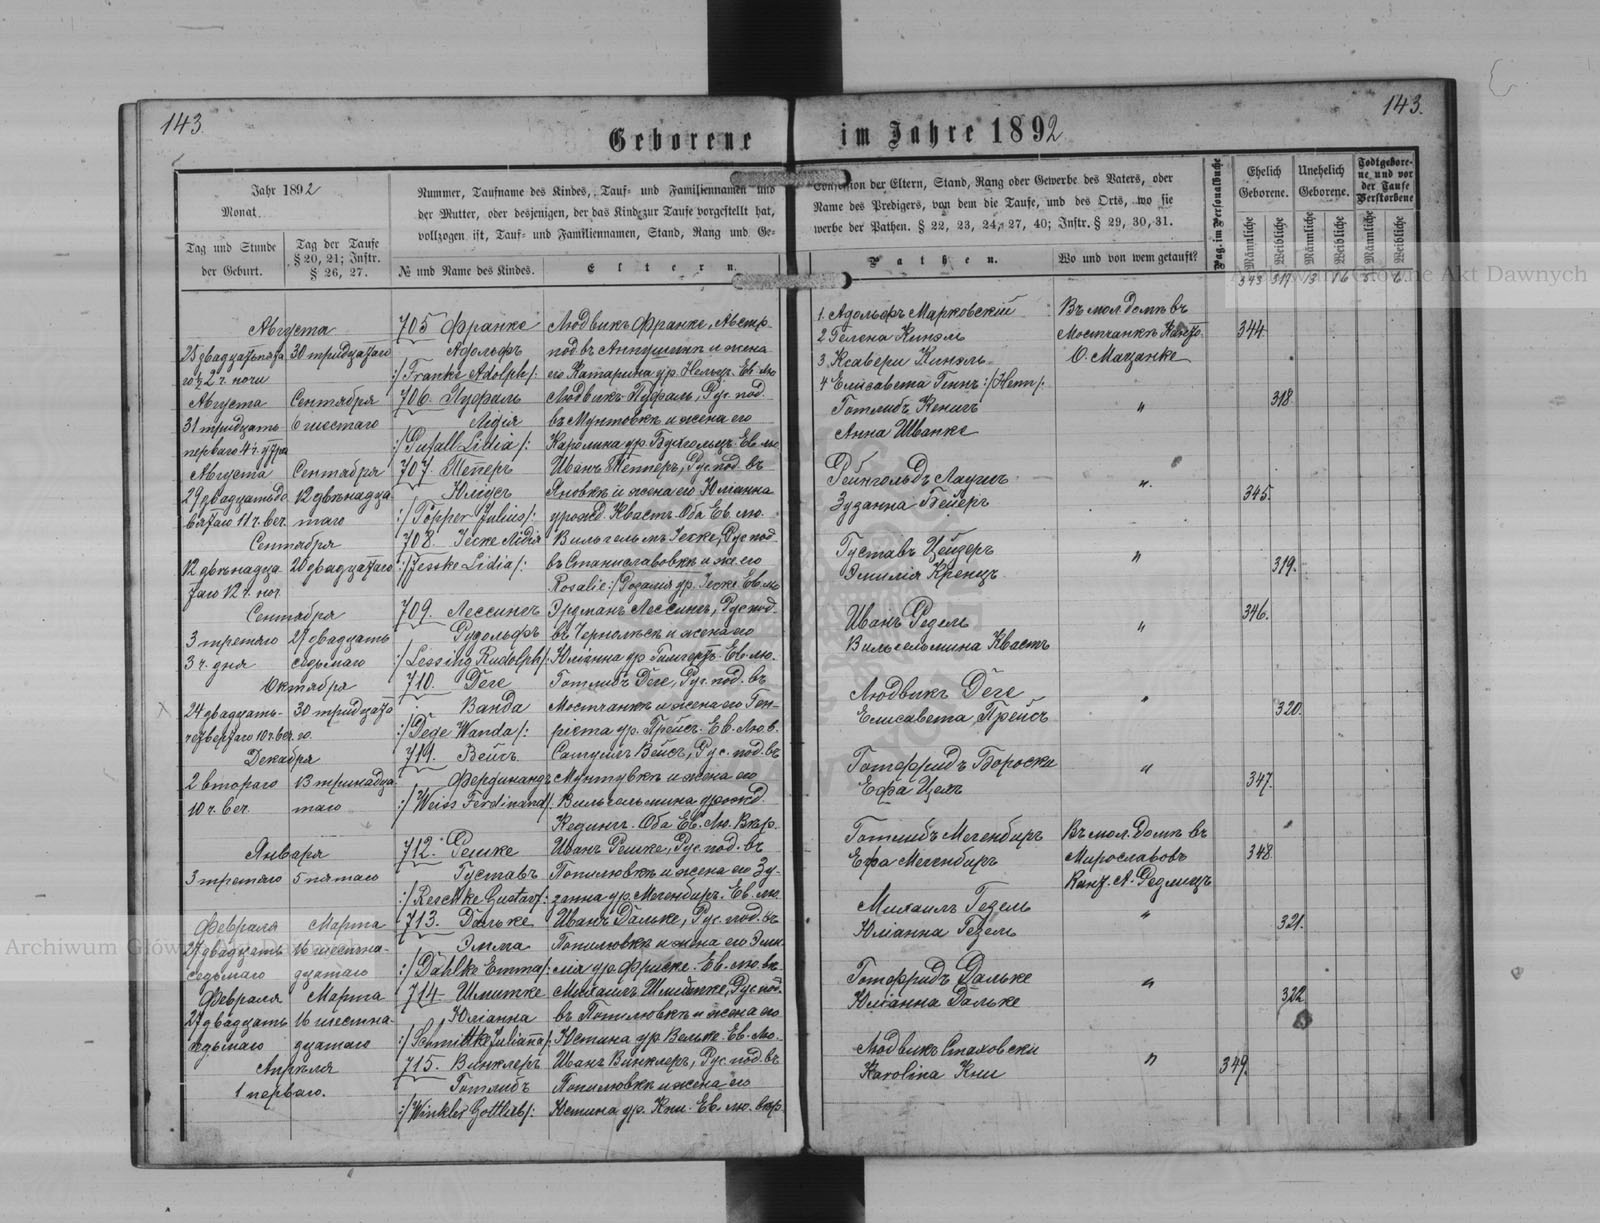 143
143.
Geborene im Jahre 1892
Jahr 1892
Monat.
Tag und Stunde
der Geburt.
Tag der Taufe
§ 20, 21; Instr.
§ 26, 27.
Nummer, Taufname des Kindes, Tauf- und Familiennamen und
der Mutter, oder desjenigen, der das Kind zur Taufe vorgestellt hat,
vollzogen ist, Tauf- und Familiennamen, Stand, Rang und Ge-
№ und Name des Kindes.
Eltern.
Confession der Eltern, Stand, Rang oder Gewerbe des Vaters, oder
Name des Predigers, von dem die Taufe, und des Orts, wo sie
werbe der Pathen. § 22, 23, 24, 27, 40; Instr. § 29, 30, 31.
Pathen.
Wo und von wem getauft?
Pag. im Personalbuche
Ehelich
Geborene.
Unehelich
Geborene.
Todtgebore-
ne und vor
der Taufe
Verstorbene
Männliche
Weibliche
Männliche
Weibliche
Männliche
Weibliche
343 317 13 16 5 6
Августа
25 двадцать пята
го в 2 ч. ночи
30 тридцатаго
705 Франке
Адольфъ
:/Franke Adolph/:
Людвикъ Франке, Австр.
под. въ и жена
его Катарина ур. Ев. лю
1. Адольфъ Марковскій
2 Гелена Кинэль
3 Ксавери Кинэль
4 Елисавета Геннъ :/Henn/:
Въ мол. домѣ въ
Мостчанкѣ Канто.
О. Мацанке
344.
Августа
31 тридцать
перваго 4 ч. утра
Сентября
6 шестаго
706. Пуфаль
Лидія
:/Pufall Lidia/:
Людвикъ Пуфаль, Рус. под.
въ Мунтовкѣ и жена его
Каролина ур. Бухгольцъ. Ев. лю.
Готлибъ Кенигъ
Анна Шванке
"
318
Августа
29 двадцать де
вятаго 11 ч. веч.
Сентября
12 двѣнадца
таго
707 Пепперъ
Юліусъ
:/Popper Julius/:
Иванъ Пепперъ, Рус. под. въ
Яновкѣ и жена его Юліанна
урожд. Квастъ. Оба Ев. лю.
Рейнгольдъ
Зузанна Бейеръ
"
345.
Сентября
12 двѣнадца
таго 12 ч. ноч.
20 двадцатаго
708. Іеске Лидія
:/Jesske Lidia/:
Вильгельмъ Іеске, Рус. под.
въ Станиславовкѣ и же. его
Rosalie :/Розалія ур. Іеске. Ев. лю
Густавъ Цейдеръ
Эмилія Кренцъ
"
319.
Сентября
3 третяго
3 ч. дня
27 двадцать
седьмаго
709. Лессингъ
Рудольфъ
:/Lessing Rudolph/:
Эрдманъ Лессингъ, Рус. под.
въ Чернолѣсѣ и жена его
Юліанна ур. Ев. лю.
Иванъ Редель
Вильгельмина Квастъ
"
346.
Октября
24 двадцать-
четвертаго 10 ч. веч.
30 тридцата
го.
710. Деге
Ванда
:/Dege Wanda/:
Готлибъ Деге, Рус. под. въ
Мостчанкѣ и жена его Ген-
ріета ур. Прейсъ. Ев. Лю. в.
Людвикъ Деге
Елисавета Прейсъ
"
320.
Декабря
2 втораго
10 ч. веч.
13 тринадца
таго
711. Вейсъ
Фердинандъ
:/Weiss Ferdinand/:
Самуилъ Вейсъ, Рус. под. въ
Мунтувкѣ и жена его
Вильгельмина урожд.
Кедингъ. Оба Ев. Лю. Вѣр.
Готфридъ Бороски
Ефа Цехъ
"
347.
Января
3 третяго
5 пятаго
712. Решке
Густавъ
:/Reschke Gustav/:
Иванъ Решке, Рус. под. въ
Попилювкѣ и жена его Зу-
занна ур. Мегенбиръ. Ев. лю.
Готлибъ Мегенбиръ
Ефа Мегенбиръ
Въ мол. Домѣ въ
Мирославовъ
Кант. А. Редмецъ
348.
Февраля
27 двадцать
седьмаго
Марта
16 шестна-
дцатаго
713. Дальке
Эмма
:/Dahlke Emma/:
Иванъ Дальке, Рус. под. въ
Попилювкѣ и жена его Эми-
лія ур. Фриске. Ев. лю. вѣ.
Михаилъ Гезель
Юліанна Гезель
"
321.
Февраля
27 двадцать
седьмаго
Марта
16 шестна-
дцатаго
714 Шмитке
Юліанна
:/Schmittke Julianna/:
Михаилъ Шмитке, Рус. под.
въ Попилювкѣ и жена его
Юстина ур. Вельке. Ев. лю.
Готфридъ Дальке
Юліанна Дальке
"
322
Апрѣля
1 перваго.
715. Винклеръ
Готлибъ
:/Winkler Gottlieb/:
Иванъ Винклеръ, Рус. под. въ
Попилювкѣ и жена его
Юстина ур. Кни. Ев. лю. вѣр.
Людвикъ Стаховски
Karolina Кни
"
349.
Archiwum Główne Akt Dawnych
Archiwum Główne Akt Dawnych